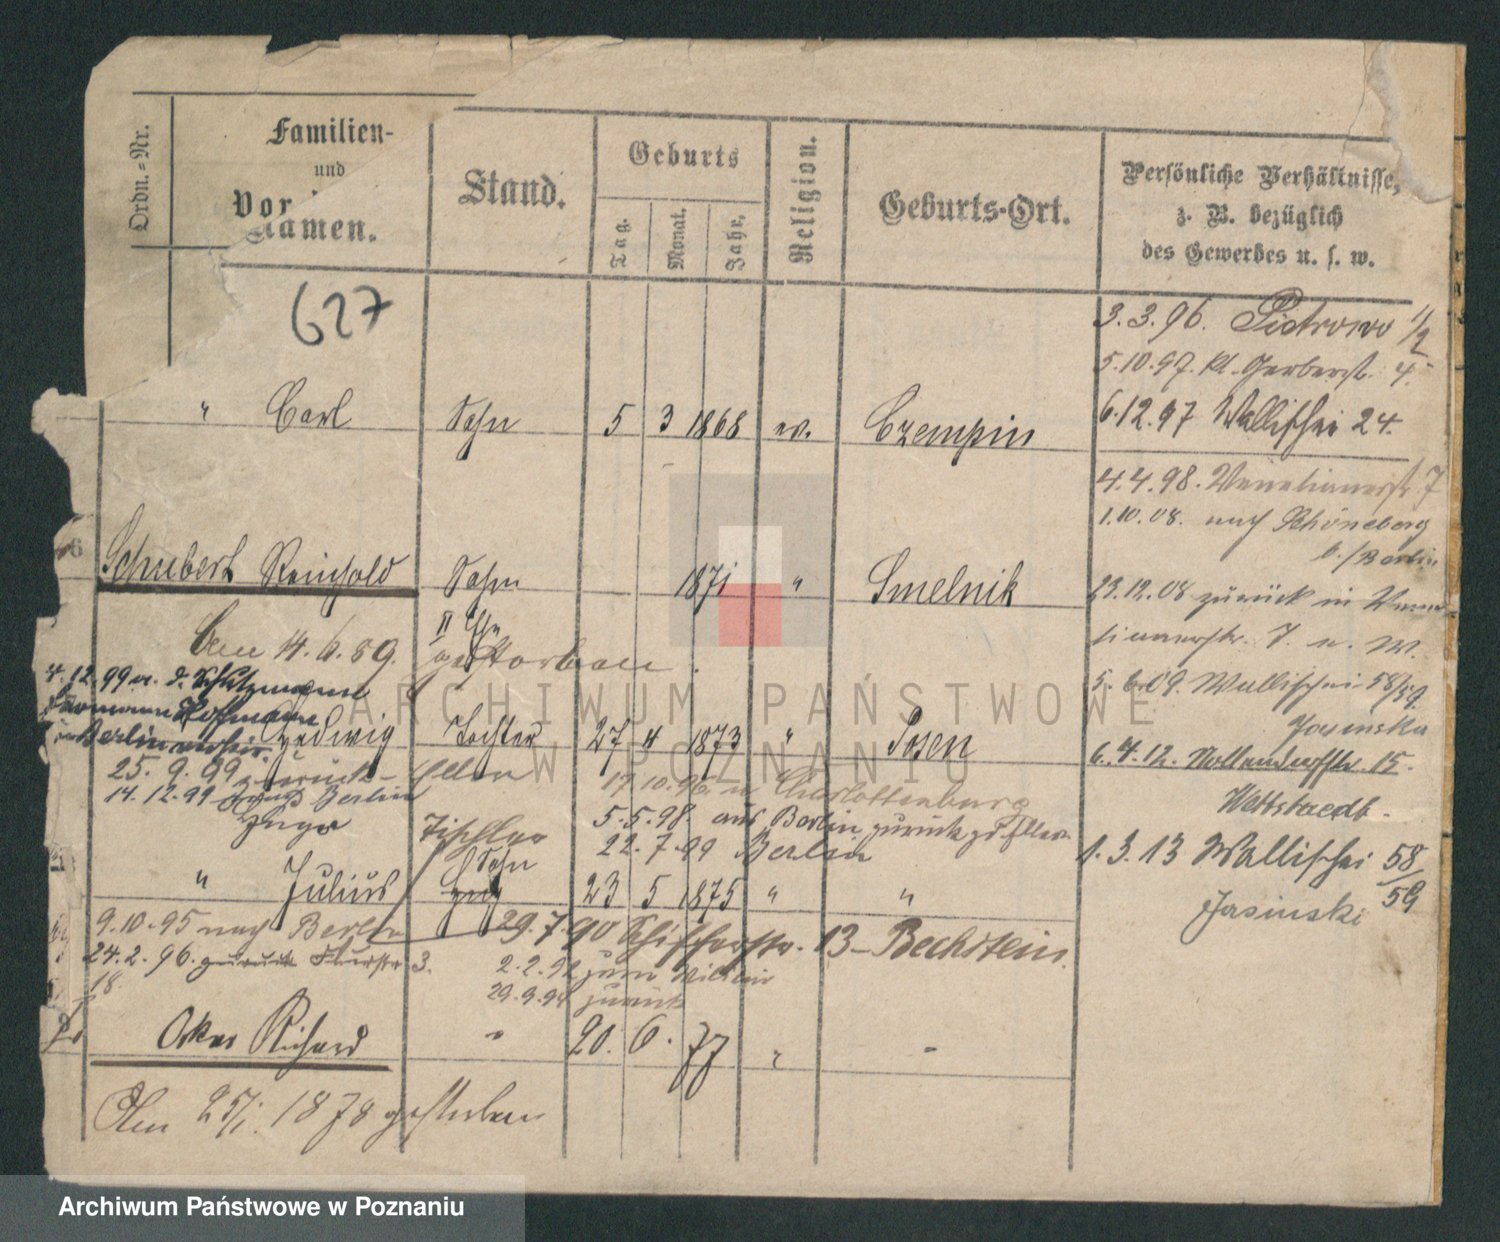 Ordn.-Nr.
Familien-
und
Vor
Namen.
Stand.
Geburts
Tag.
Monat.
Jahr.
Religion.
Geburts-Ort.
Persönliche Verhältnisse,
z. B. bezüglich
des Gewerbes u. s. w.
627
3.3.96. Piotrowo 1/2
5.10.97. Kl. Gerberstr. 4.
6.12.97 Wallischei 24.
" Carl Sohn 5 3 1868 ev. Czempin
4.4.98. Venetianerstr. 7
1.10.08. nach Schöneberg
b./Berlin
6 Schubert Reinhold Sohn 1871 " Smelnik
23.12.08 zurück in
7. u. W.
II Ehe
Am 14.6.89. gestorben.
5.6.09. Wallischei 58/59
Jasinska
4.12.99 a. d. Schutzmann
Hermann Hoffmann
Berlin
Hedwig Tochter 27 4 1873 " Posen
6.4.12. Nollendorfstr. 15.
25.9.99 zurück - Eltern
17.10.96 n. Charlottenburg
14.12.99 Berlin
Wettstaedt.
5.5.98. aus Berlin zurück zu Eltern
Tischler
22.7.99 Berlin
1.3.13 Wallischei 58/59
Jasinski
" Julius Sohn 23 5 1875 " "
9.10.95 nach Berlin
29.7.90 Schifferstr. 13 - Bechstein.
24.2.96. zurück Flurstr. 3.
2.2.92 zum
29.9.94 zurück
18
Oskar Richard " 20. 6. 77 " "
Am 25/1. 1878 gestorben
ARCHIWUM PAŃSTWOWE
W POZNANIU
Archiwum Państwowe w Poznaniu